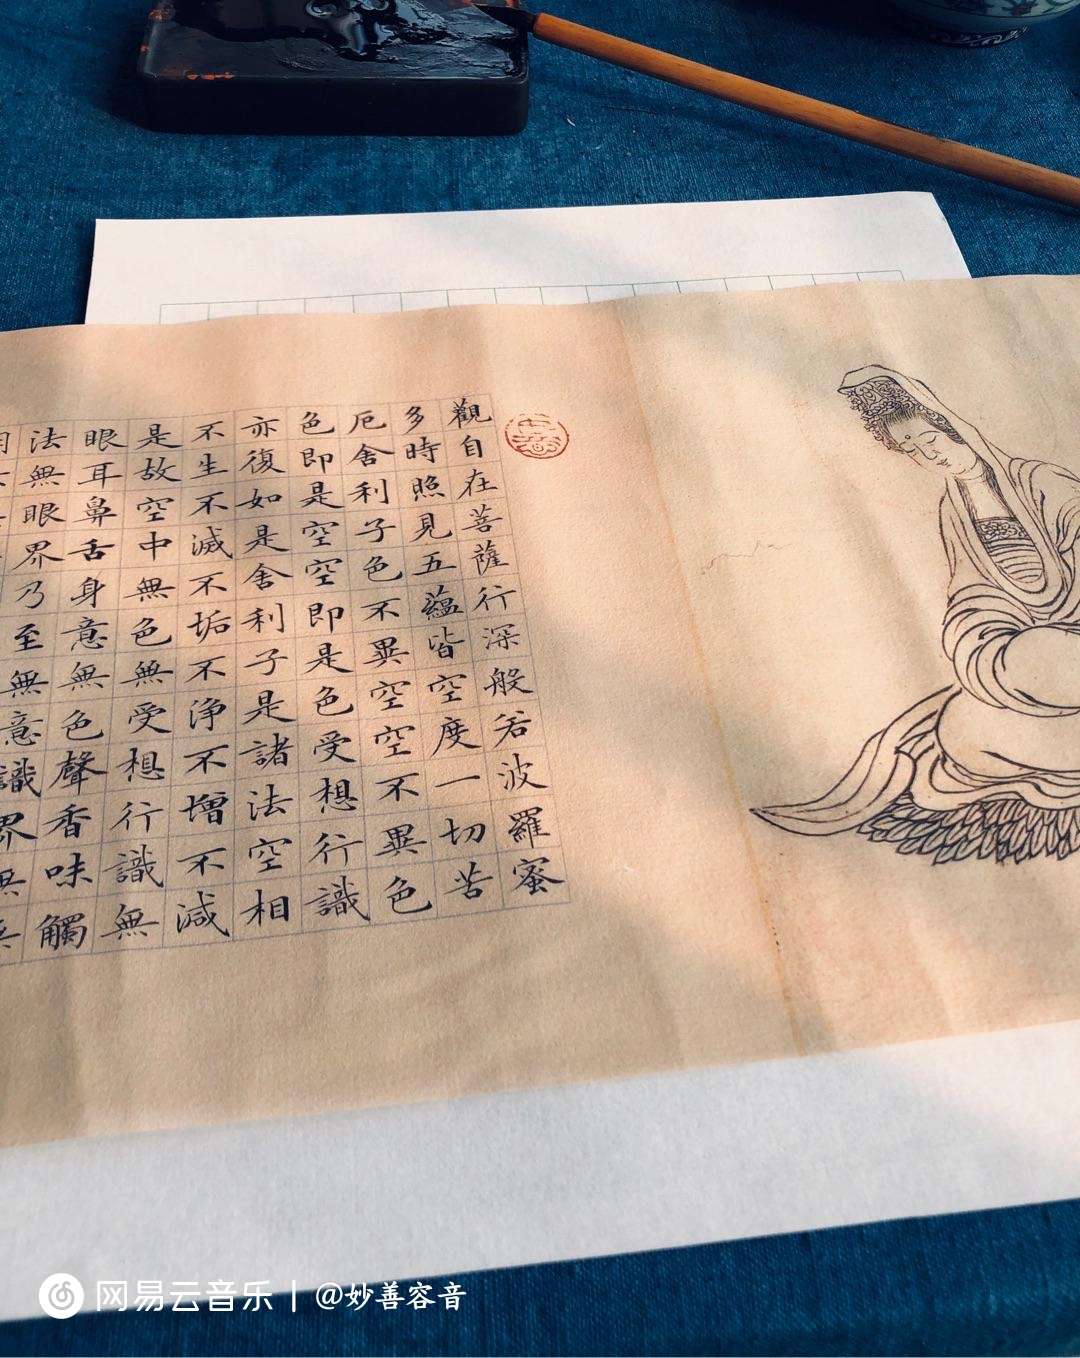 觀自在菩薩行深般若波羅蜜
多時照見五蘊皆空度一切苦
厄舍利子色不異空空不異色
色即是空空即是色受想行識
亦復如是舍利子是諸法空相
不生不滅不垢不淨不增不減
是故空中無色無受想行識無
眼耳鼻舌身意無色聲香味觸
法無眼界乃至無意識界無無
网易云音乐 | @妙善容音